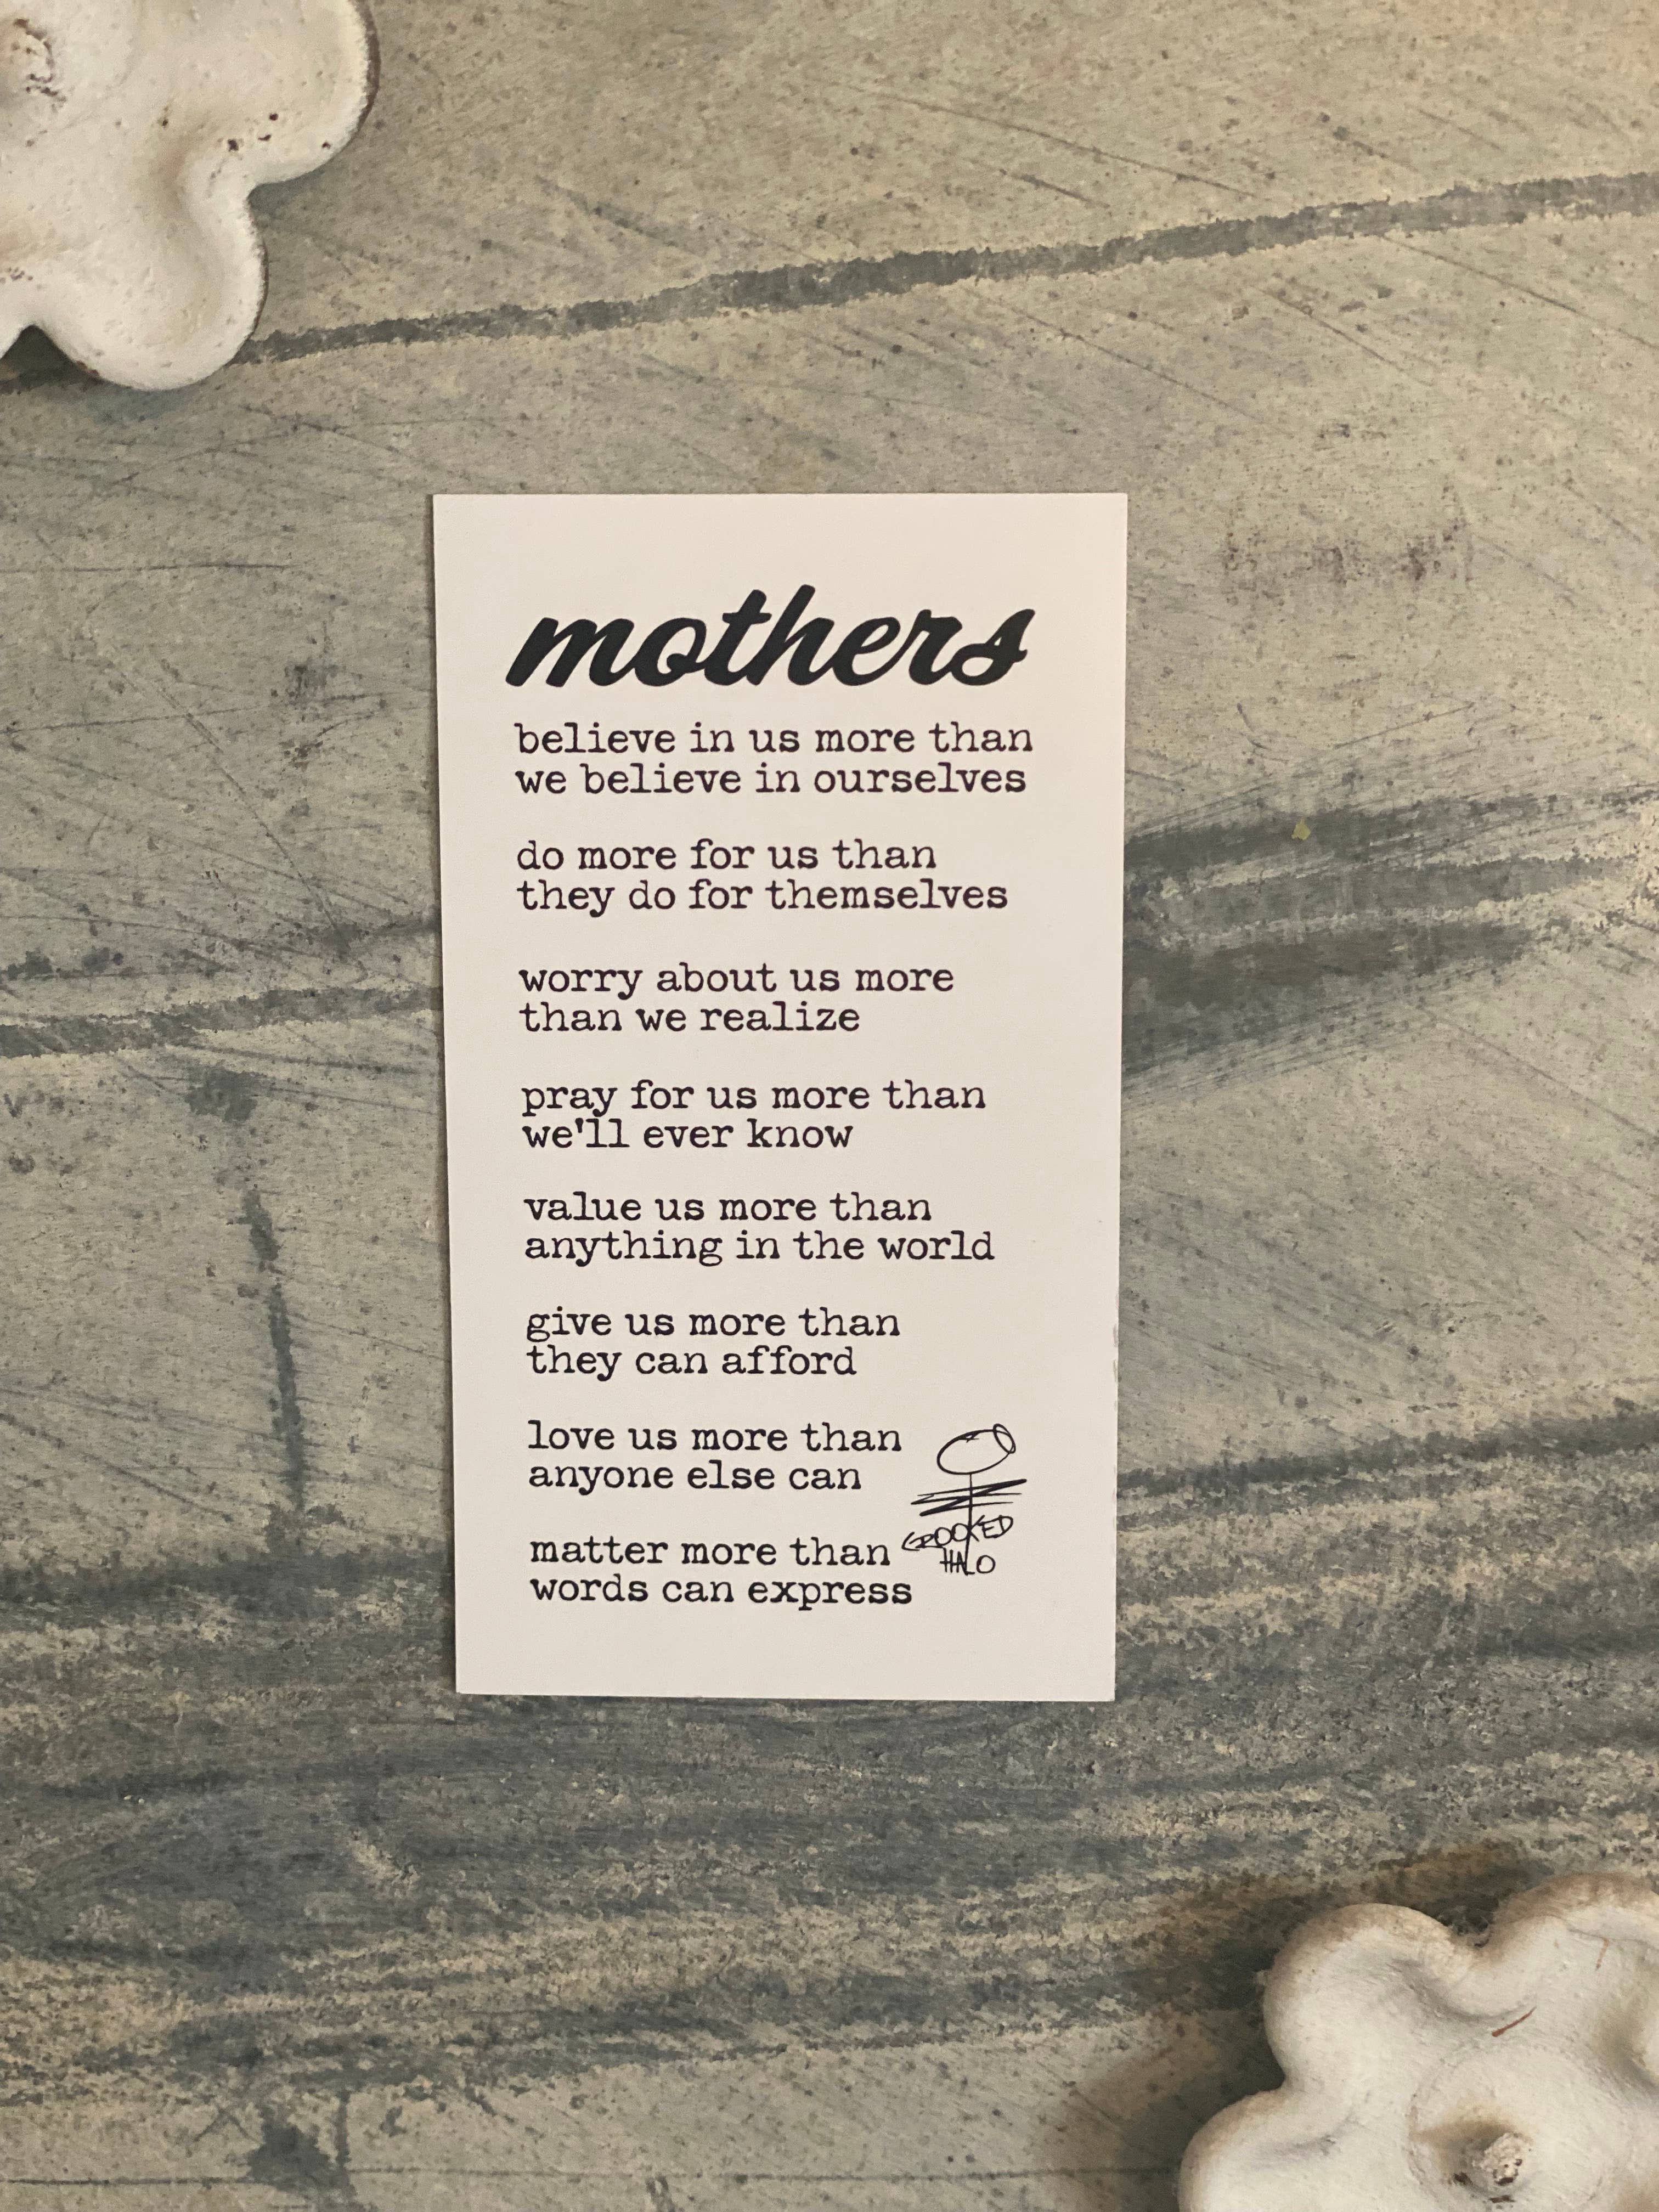 mothers
believe in us more than
we believe in ourselves
do more for us than
they do for themselves
worry about us more
than we realize
pray for us more than
we'll ever know
value us more than
anything in the world
give us more than
they can afford
love us more than
anyone else can
matter more than
words can express
CROOKED
HALO